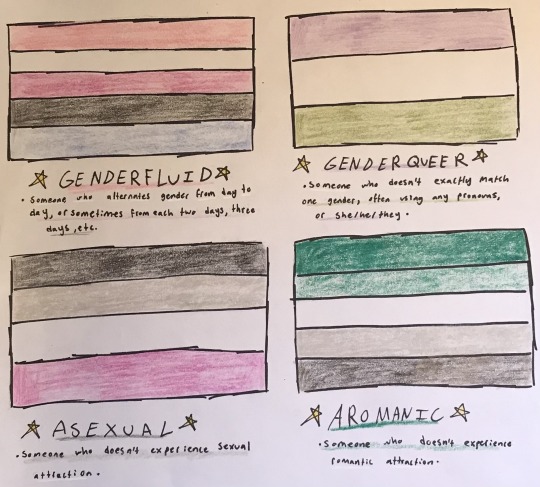 GENDERFLUID
• Someone who alternates gender from day to
day, or sometimes from each two days, three
days, etc.
GENDERQUEER
• Someone who doesn't exactly match
one gender, often using any pronouns,
or she/he/they.
ASEXUAL
• Someone who doesn't experience sexual
attraction.
AROMANIC
• Someone who doesn't experience
romantic attraction.